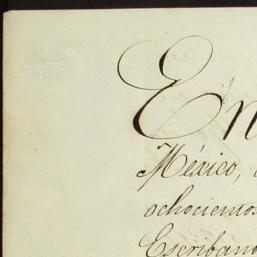 En
México,
ochocientos
Escribano